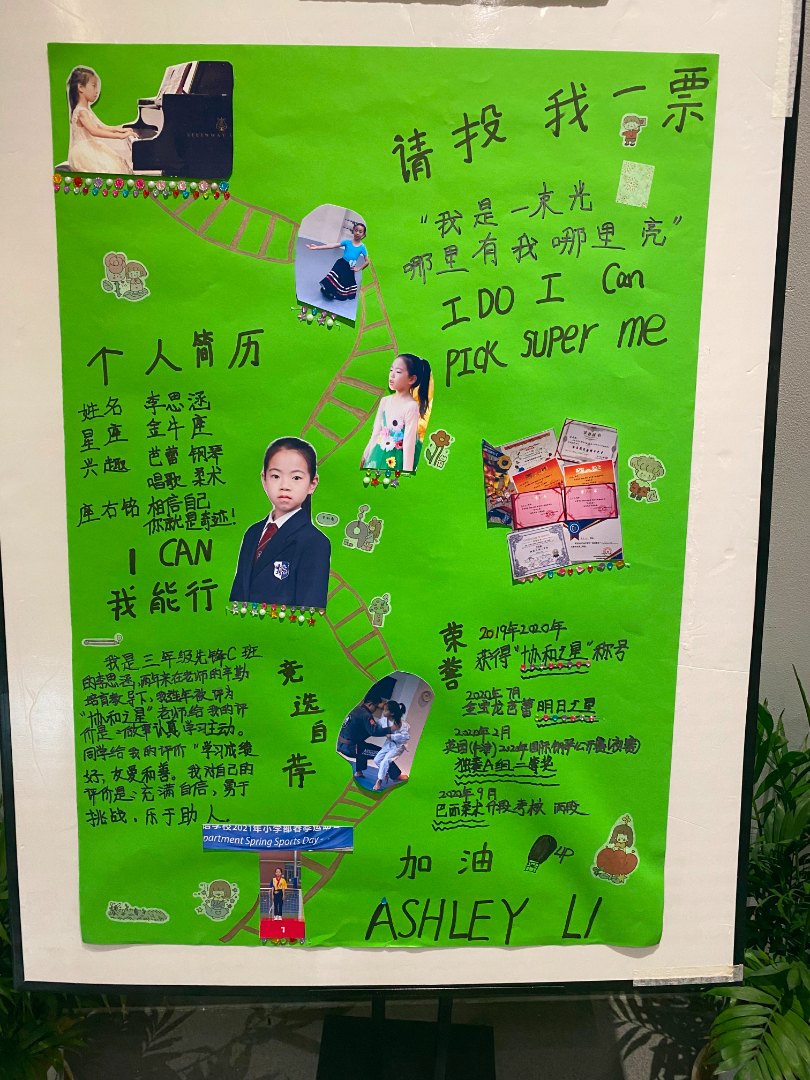 请投我一票
“我是一束光
哪里有我哪里亮”
I DO I Can
PICK SUPER me
个人简历
姓名 李思涵
星座 金牛座
兴趣 芭蕾 钢琴
唱歌 柔术
座右铭 相信自己
你就是奇迹!
I CAN
我能行
竞选自荐
我是三年级先锋C班
的李思涵,两年来在老师的辛勤
培育教导下,我连年被评为
“协和之星”老师给我的评
价是:“做事认真,学习主动。
同学给我的评价“学习成绩
好,友爱和善。我对自己的
评价是:充满自信,勇于
挑战,乐于助人
荣誉
2019年2020年
获得“协和之星”称号
2020年7月
金宝龙芭蕾明日之星
2020年2月
独奏A组二等奖
2020年9月
巴西柔术 阶段考核 两段
学校2021年小学部春季运动
partment Spring Sports Day
1
加油
UP
ASHLEY LI